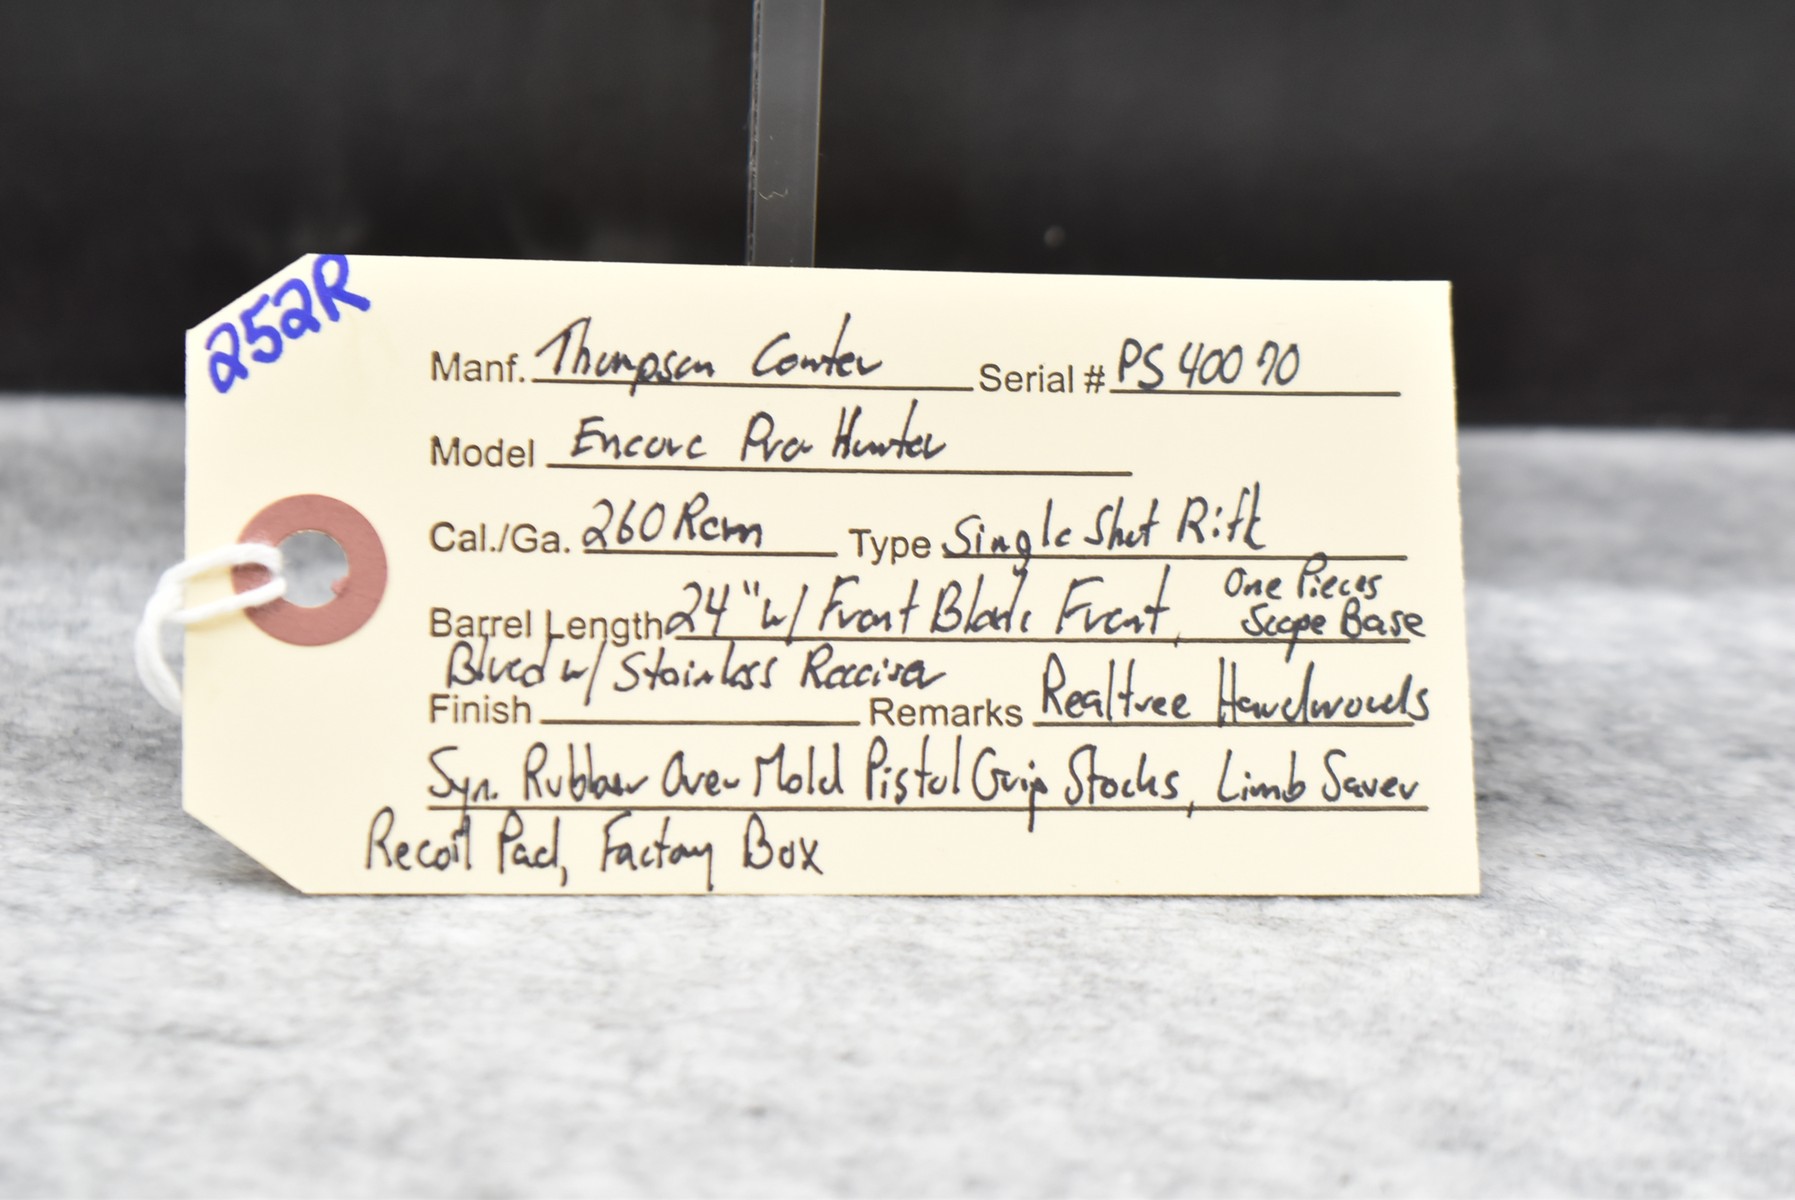 252R
Manf. Thompson Center Serial # PS40070
Model Encore Pro Hunter
Cal./Ga. 260 Rem Type Single Shot Rifle
Barrel Length 24" w/ Front Blade Front, One Pieces Scope Base
Blued w/ Stainless Receiver
Finish Remarks Realtree Hardwoods
Syn. Rubber Over Mold Pistol Grip Stocks, Limb Saver
Recoil Pad, Factory Box